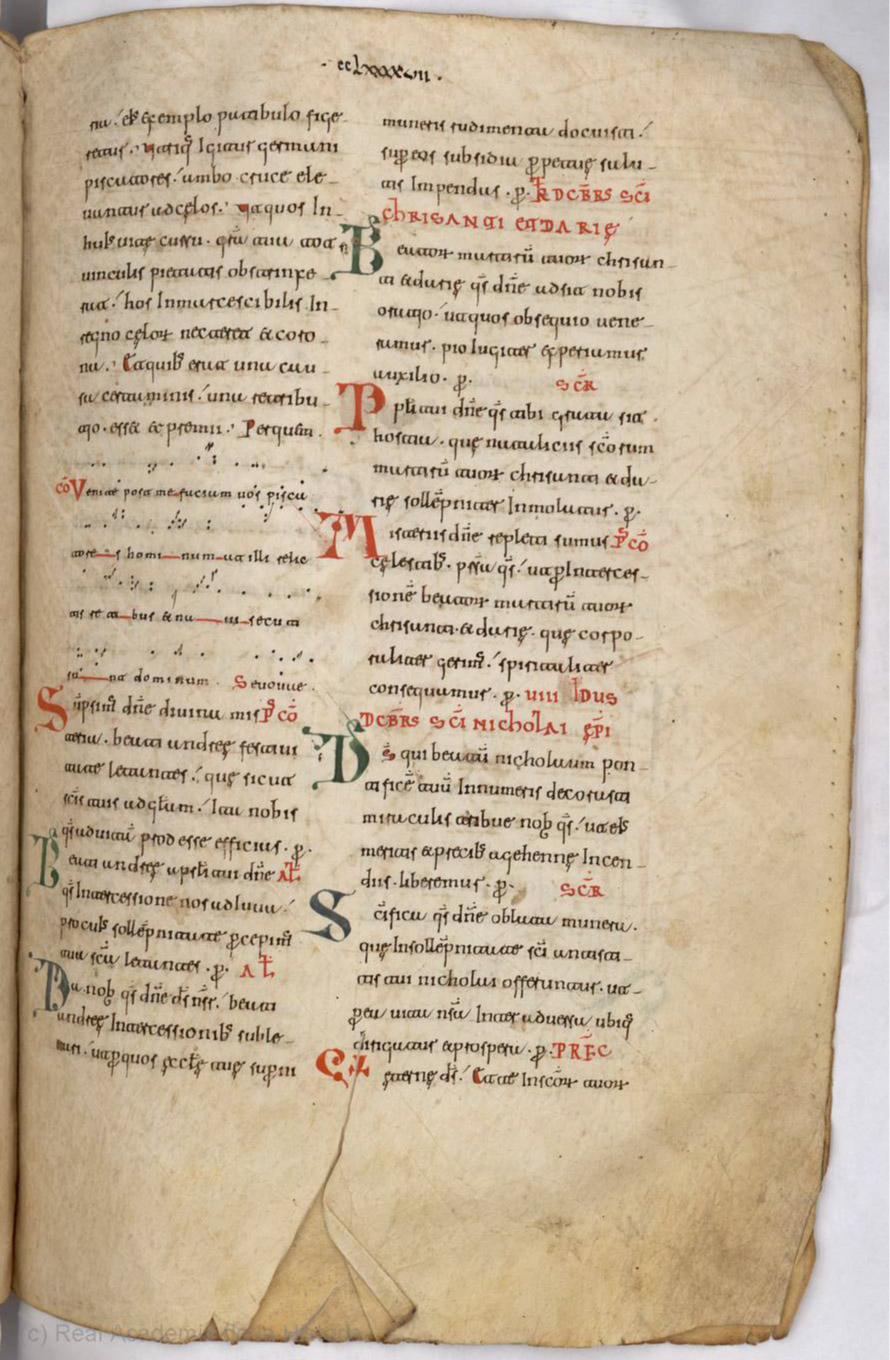 · cclxxxvii ·
ra. et exemplo patibulo fige
retur. Utriq; Igitur germani
piscatores. ambo cruce ele
uantur ad celos. ut quos In
huius uite cursu. gra tua tot
uinculis pietatis obstrinxe
rat. hos Inmarcescibilis In
regno celor necteret et coro
na. Et a quib; erat una cau
sa certaminis. una retribu
tio. esset et premii. Per quem.
cō Venite post me faciam uos pisca
tores hominum at illi relic
tis retibus et naui secuti
sunt dominum. Seuouae.
Sūpsim dne diuina mis P̄ cō
teria. beati andree festiui
tate letantes. que sicut
scis tuis ad glam. Ita nobis
qs ad uitā prodesse efficias. p.
Beati andree apli tui dne Al̄
qs Intercessione nos adiuua.
pro cuius sollēpnitate p̄cepim
tua scā letantes. p. Al̄
Da nob qs dne ds nsr. beati
andree Intercessionib; suble
uari. ut per quos ęcclę tuę supni
muneris rudimenta docuisti.
sup eos subsidia ppetuę salu
tis Impendas. p. Kl DCBRS SCI
CHRISANTI ET DARIE
Beator martirū tuor chrisan
ti et darię qs dne adsit nobis
oratio. ut quos obsequio uene
ramur. pio Iugiter experiamur
auxilio. p. SCR
Pplī tui dne qs tibi grata sit
hostia. que nataliciis scorum
martirū tuor chrisanti et da
rię sollēpniter Inmolatur. p.
Misteriis dne repleti sumus P̄ cō
celestib;. psta qs. ut p Interces
sionē beator martirū tuor
chrisanti. et darię. que corpo
raliter gerim. spiritualiter
consequamur. p. VIII Idus
DCBRS SCI NICHOLAI EPI
Ds qui beatū nicholaum pon
tificē tuū Innumeris decorasti
miraculis tribue nob qs. ut eius
meritis et precib; a gehennę Incen
diis liberemur. p. SCR
Scifica qs dne oblata munera.
que In sollēpnitate sci antisti
tis tui nicholai offeruntur. ut
p ea uita nra Inter aduersa ubiq;
dirigatur et prospera. p. PREFC
Et eterne ds. Et te In scor tuor